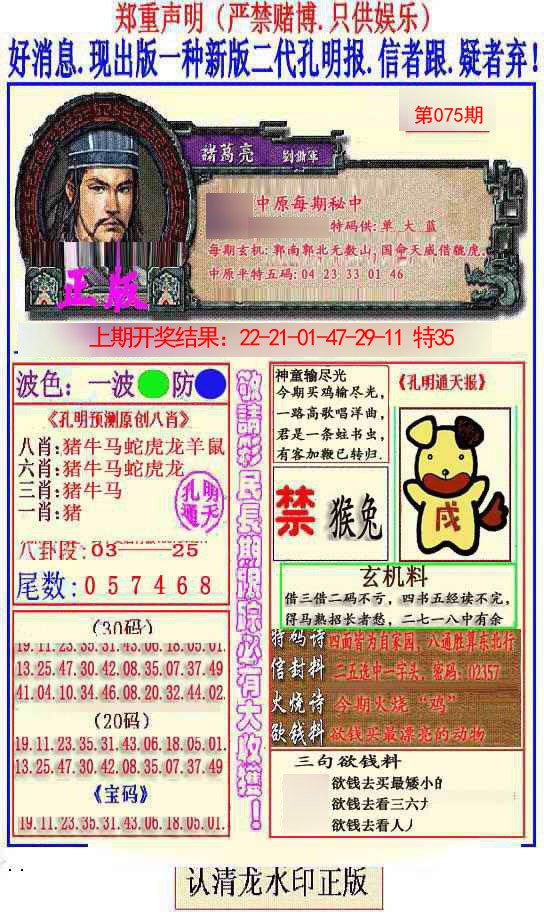 郑重声明（严禁赌博.只供娱乐）
好消息.现出版一种新版二代孔明报.信者跟.疑者弃！
第075期
諸葛亮
中原每期秘中
特码供:单 大 蓝
每期玄机:郭南郭北无数山,国命天威借貔虎.
中原平特五码:04 23 33 01 46
正版
上期开奖结果：22-21-01-47-29-11 特35
波色：一波 防
《孔明预测原创八肖》
八肖:猪牛马蛇虎龙羊鼠
六肖:猪牛马蛇虎龙
三肖:猪牛马
一肖:猪
孔明
通天
八卦段:03——25
尾数:057468
(30码)
19.11.23.35.31.43.06.18.05.01.
13.25.47.30.42.08.35.07.37.49
41.04.10.34.46.08.20.32.44.02
(20码)
19.11.23.35.31.43.06.18.05.01.
13.25.47.30.42.08.35.07.37.49
《宝码》
19.11.23.35.31.43.06.18.05.01.
敬請彩民長期跟踪必有大收獲！
神童输尽光
今期买鸡输尽光,
一路高歌唱洋曲,
君是一条蛀书虫,
有客加鞭已转归.
《孔明通天报》
禁 猴兔
戌
玄机料
借三借二码不亏, 四书五经读不完,
得马熟招长者愁, 二七一八中有余
特码诗 四面皆为自家园, 八通胜算东北行
信封料 二五选中一字头, 密码:02357
火烧诗 今期火烧“鸡”
欲钱料 欲钱买最漂亮的动物
三句欲钱料
欲钱去买最矮小的
欲钱去看三六
欲钱去看人
认清龙水印正版